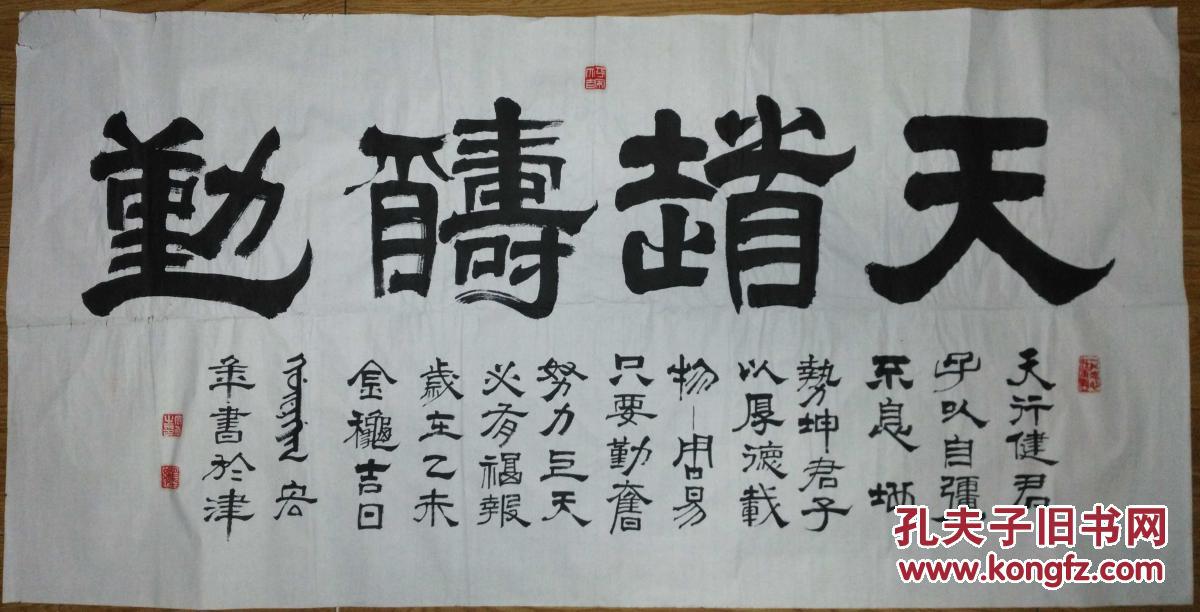 天道醻勤
天行健君
子以自彊
不息 地
勢坤君子
以厚德載
物—周易
只要勤奮
努力巨天
必有福報
歲在乙未
金穐吉日
宏
年書於津
孔夫子旧书网
www.kongfz.com